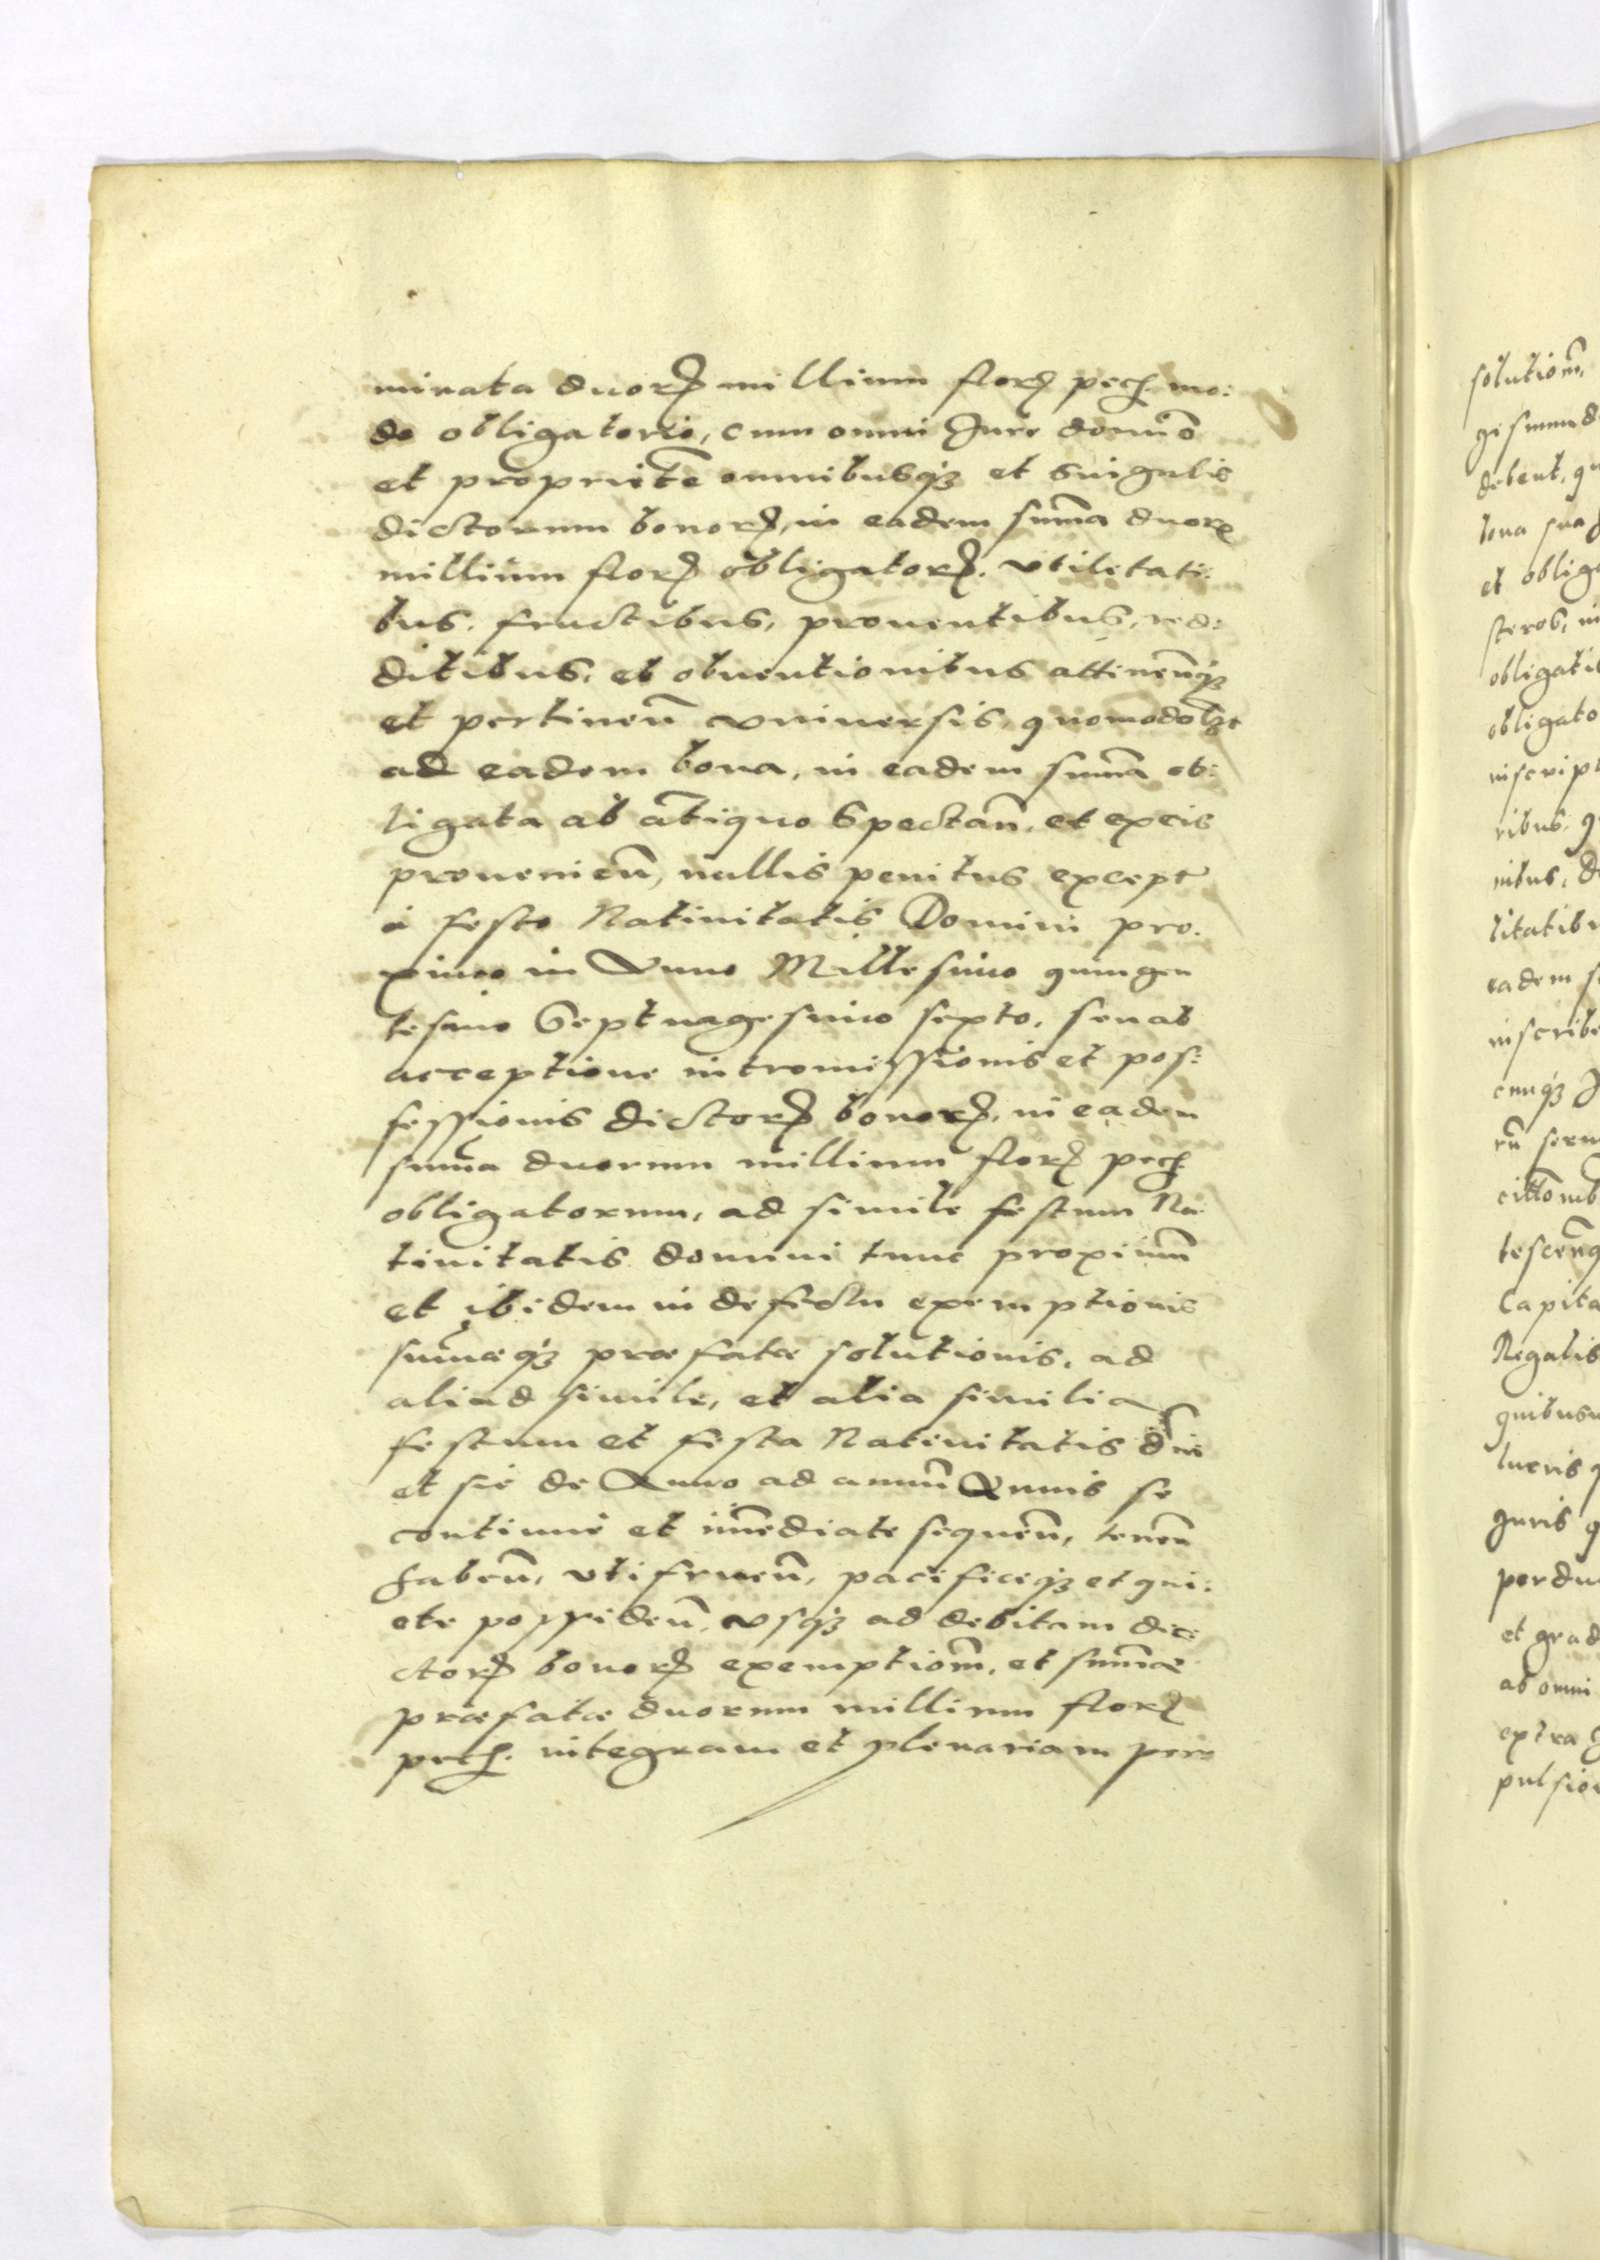 minata duorꝝ millium florꝝ pech. mo:
do obligatorio, cum omni Jure domīo
et proprietē omnibusqꝫ et singulis
dictorum bonorꝝ, in eadem sum̄a duorꝝ
millium florꝝ obligatorꝝ. vtilitati:
bus, fructibus, prouentibus, red:
ditibus, et obuentionibus attinen̄qꝫ
et pertinen̄ vniuersis, quomodolꝫt
ad eadem bona, in eadem sum̄a ob:
ligata ab ātiquo Spectan̄, et ex eis
prouenien̄, nullis penitus except
à festo Natiuitatis Domini pro:
ximo in Anno Millesimo quingen
tesimo Septuagesimo sexto, seu ab
acceptione intromissionis et pos:
sessionis dictorꝝ bonorꝝ, in eadem
sum̄a duorum millium florꝝ pech
obligatorum, ad simile festum Na:
tiuitatis domini tunc proximū
et ibidem in defectu exemptionis
sum̄æqꝫ præfatæ solutionis, ad
aliud simile, et alia similia
festum et festa Natiuitatis dn̄i
et sic de Anno ad annū Annis se
continuè et im̄ediate sequen̄, tenen̄
haben̄, vtifruen̄, pacificeqꝫ et qui:
ete possiden̄, vsqꝫ ad debitam dic:
ctorꝝ bonorꝝ exemptiom̄, et sum̄æ
præfatæ duorum millium florꝝ
pech. integram et plenariam pers
solutiom̄,
gismund
debent, qu
bona sua
et obliga
steros, in
obligati
obligato
inscript
ribus, q
nibus, d
litatib
eadem s
inscribe
cunqꝫ J
rū seru
citōnib
tescen̄q
Capita
Regalis
quibusu
lucris q
Juris q
perdu
et grad
ab omni
extra
pulsio